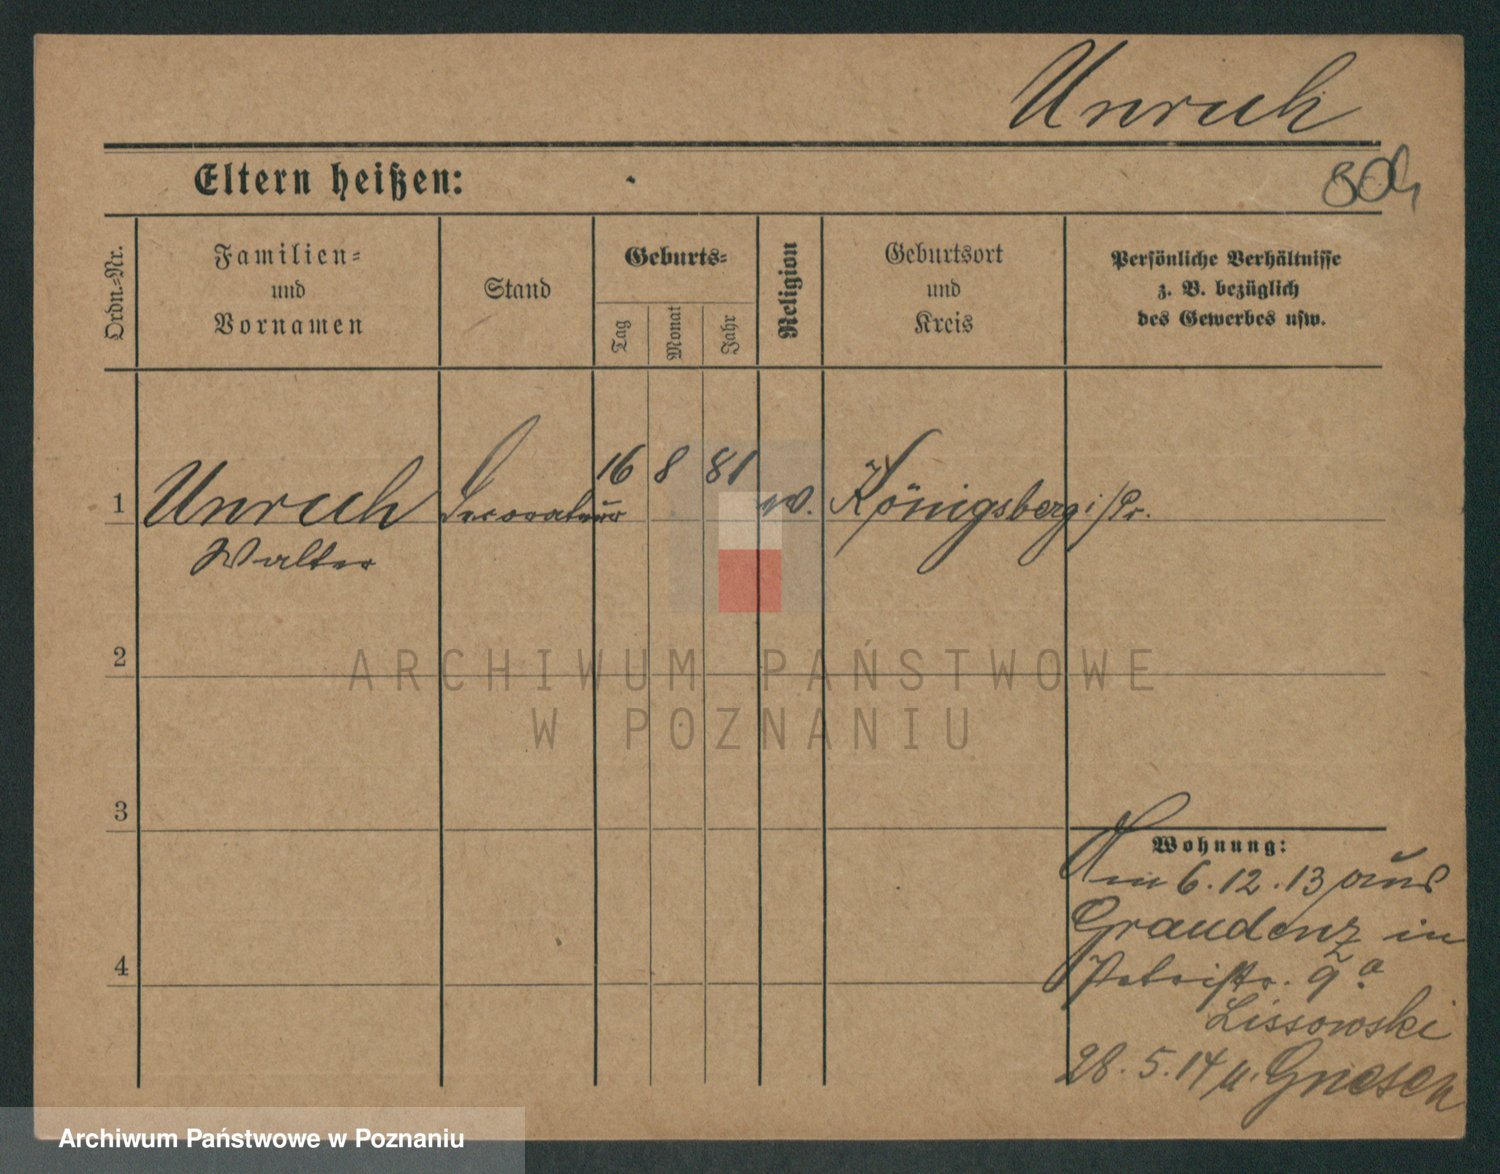 Unruh
Eltern heißen:
Ordn.-Nr.
Familien-
und
Vornamen
Stand
Geburts-
Tag
Monat
Jahr
Religion
Geburtsort
und
Kreis
Persönliche Verhältnisse
z. B. bezüglich
des Gewerbes usw.
1
Unruh
Walter
Decorateur
16 8 81
ev.
Königsberg i/Pr.
2
3
4
Wohnung:
Am 6.12.13 aus
Graudenz in
Petristr. 9a
Lissowski
28.5.14 n. Gnesen
ARCHIWUM PAŃSTWOWE
W POZNANIU
Archiwum Państwowe w Poznaniu